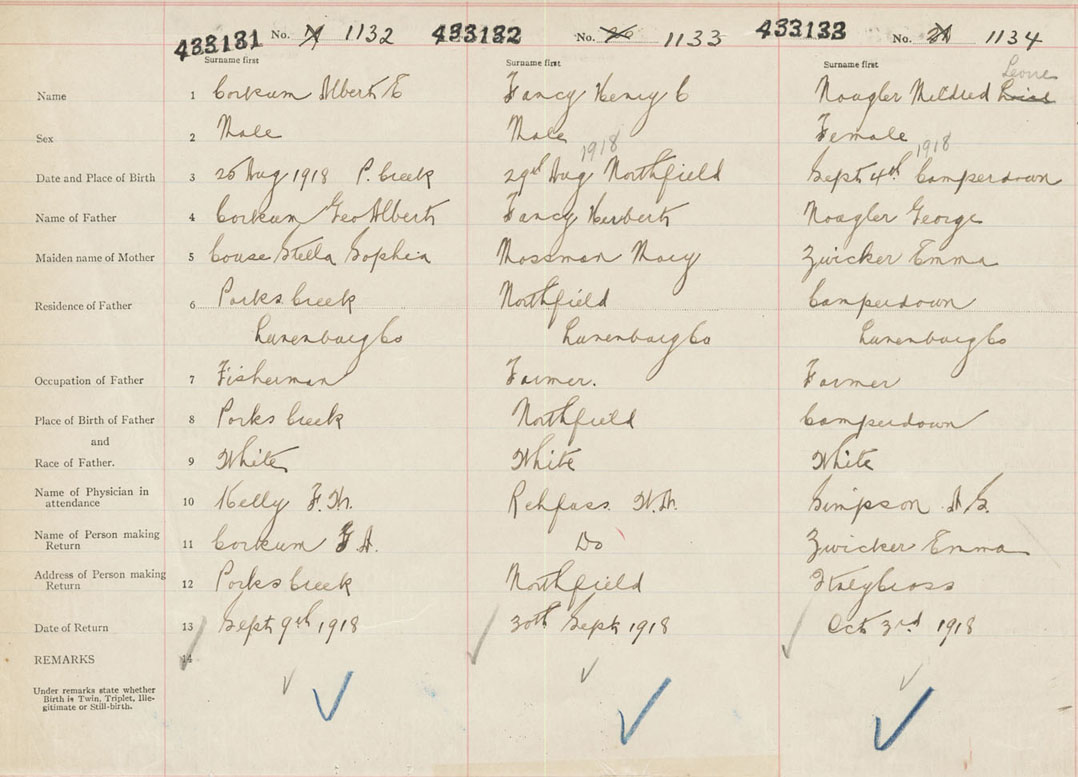 433131 No. 1132 433132 No. 1133 433133 No. 1134
Surname first Surname first Surname first
Leone
Name 1 Corkum Albert E Fancy Henry C Naugler Mildred
Sex 2 Male Male Female
1918 1918
Date and Place of Birth 3 26 Aug 1918 P. Creek 29th Aug Northfield Sept 4th Camperdown
Name of Father 4 Corkum Geo Albert Fancy Herbert Naugler George
Maiden name of Mother 5 Couse Stella Sophia Mossman Mary Zwicker Emma
Residence of Father 6 Parks Creek Northfield Camperdown
Lunenburg Co Lunenburg Co Lunenburg Co
Occupation of Father 7 Fisherman Farmer. Farmer
Place of Birth of Father 8 Parks Creek Northfield Camperdown
and
Race of Father. 9 White White White
Name of Physician in
attendance 10 Kelly F.W. Rehfuss W.N. Simpson
Name of Person making
Return 11 Corkum G A. Do Zwicker Emma
Address of Person making
Return 12 Parks Creek Northfield
Date of Return 13 Sept 9th 1918 30th Sept 1918 Oct 3rd 1918
REMARKS 14
Under remarks state whether
Birth is Twin, Triplet, Ille-
gitimate or Still-birth.